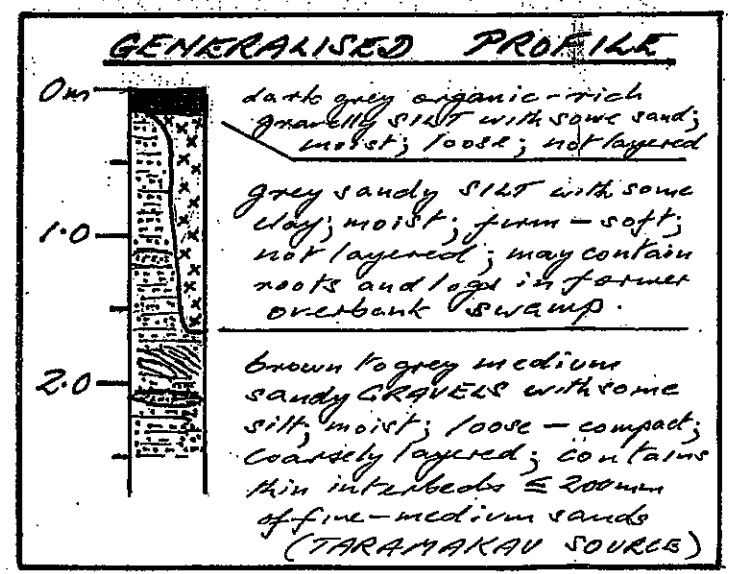 GENERALISED PROFILE
0m
dark grey organic-rich
gravelly SILT with some sand;
moist; loose; not layered
grey sandy SILT with some
clay; moist; firm - soft;
1.0
not layered; may contain
roots and logs in former
overbank swamp.
brown to grey medium
2.0
sandy GRAVELS with some
silt; moist; loose - compact;
coarsely layered; contains
thin interbeds ≤ 200mm
of fine-medium sands
(TARAMAKAU SOURCE)